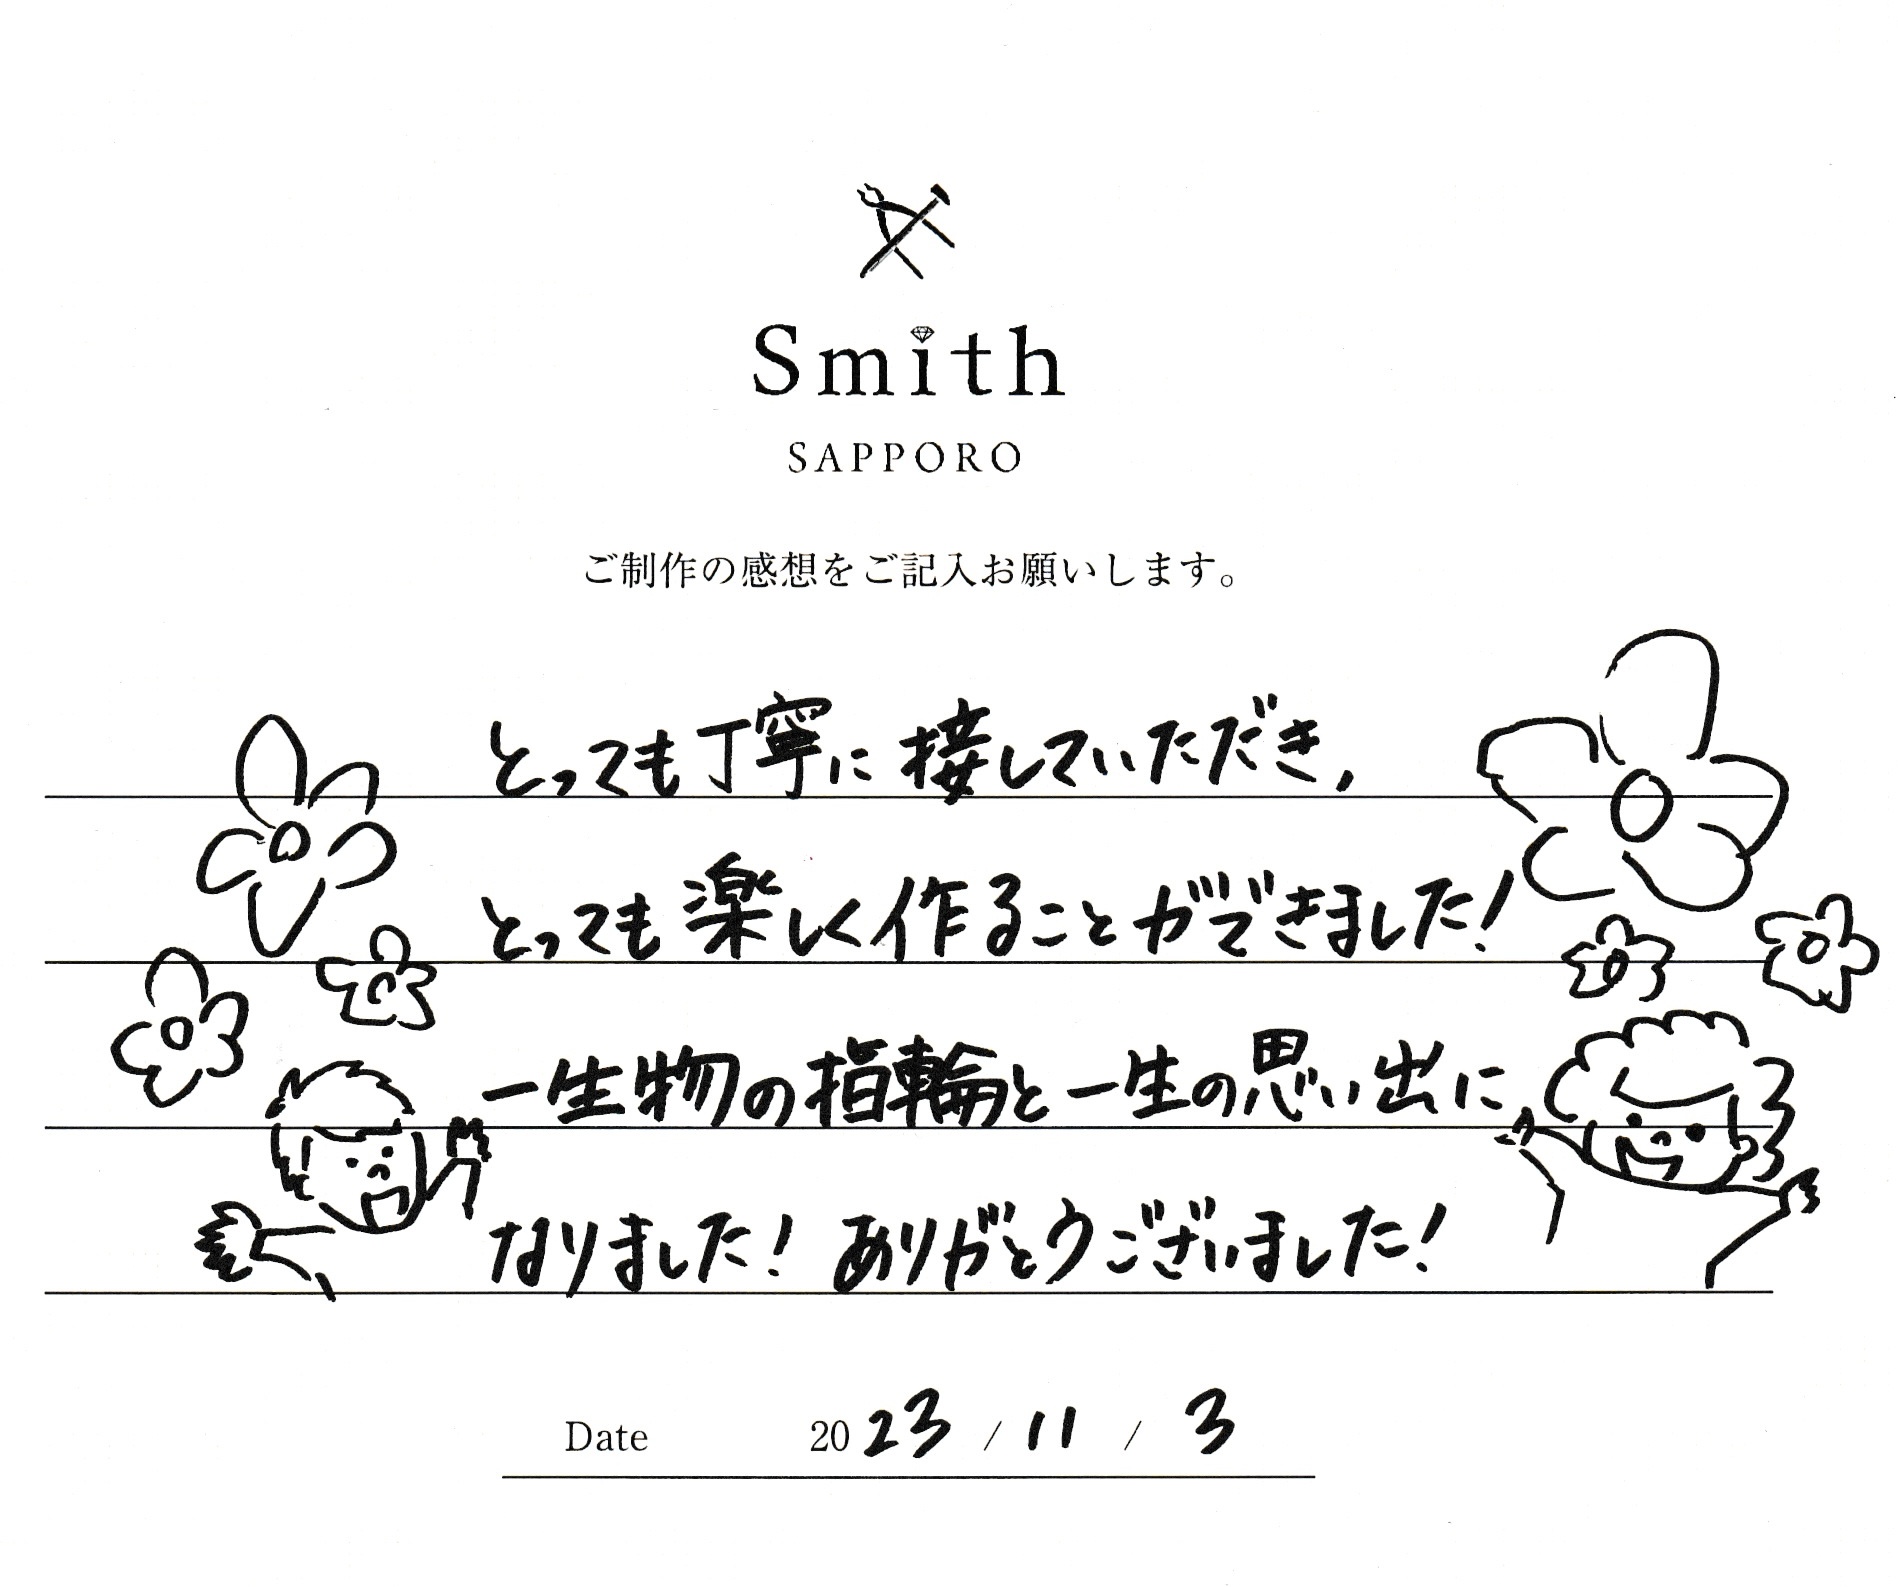 Smith
SAPPORO
ご制作の感想をご記入お願いします。
とっても丁寧に接していただき,
とっても楽しく作ることができました!
一生物の指輪と一生の思い出に
なりました! ありがとうございました!
Date 2023 / 11 / 3